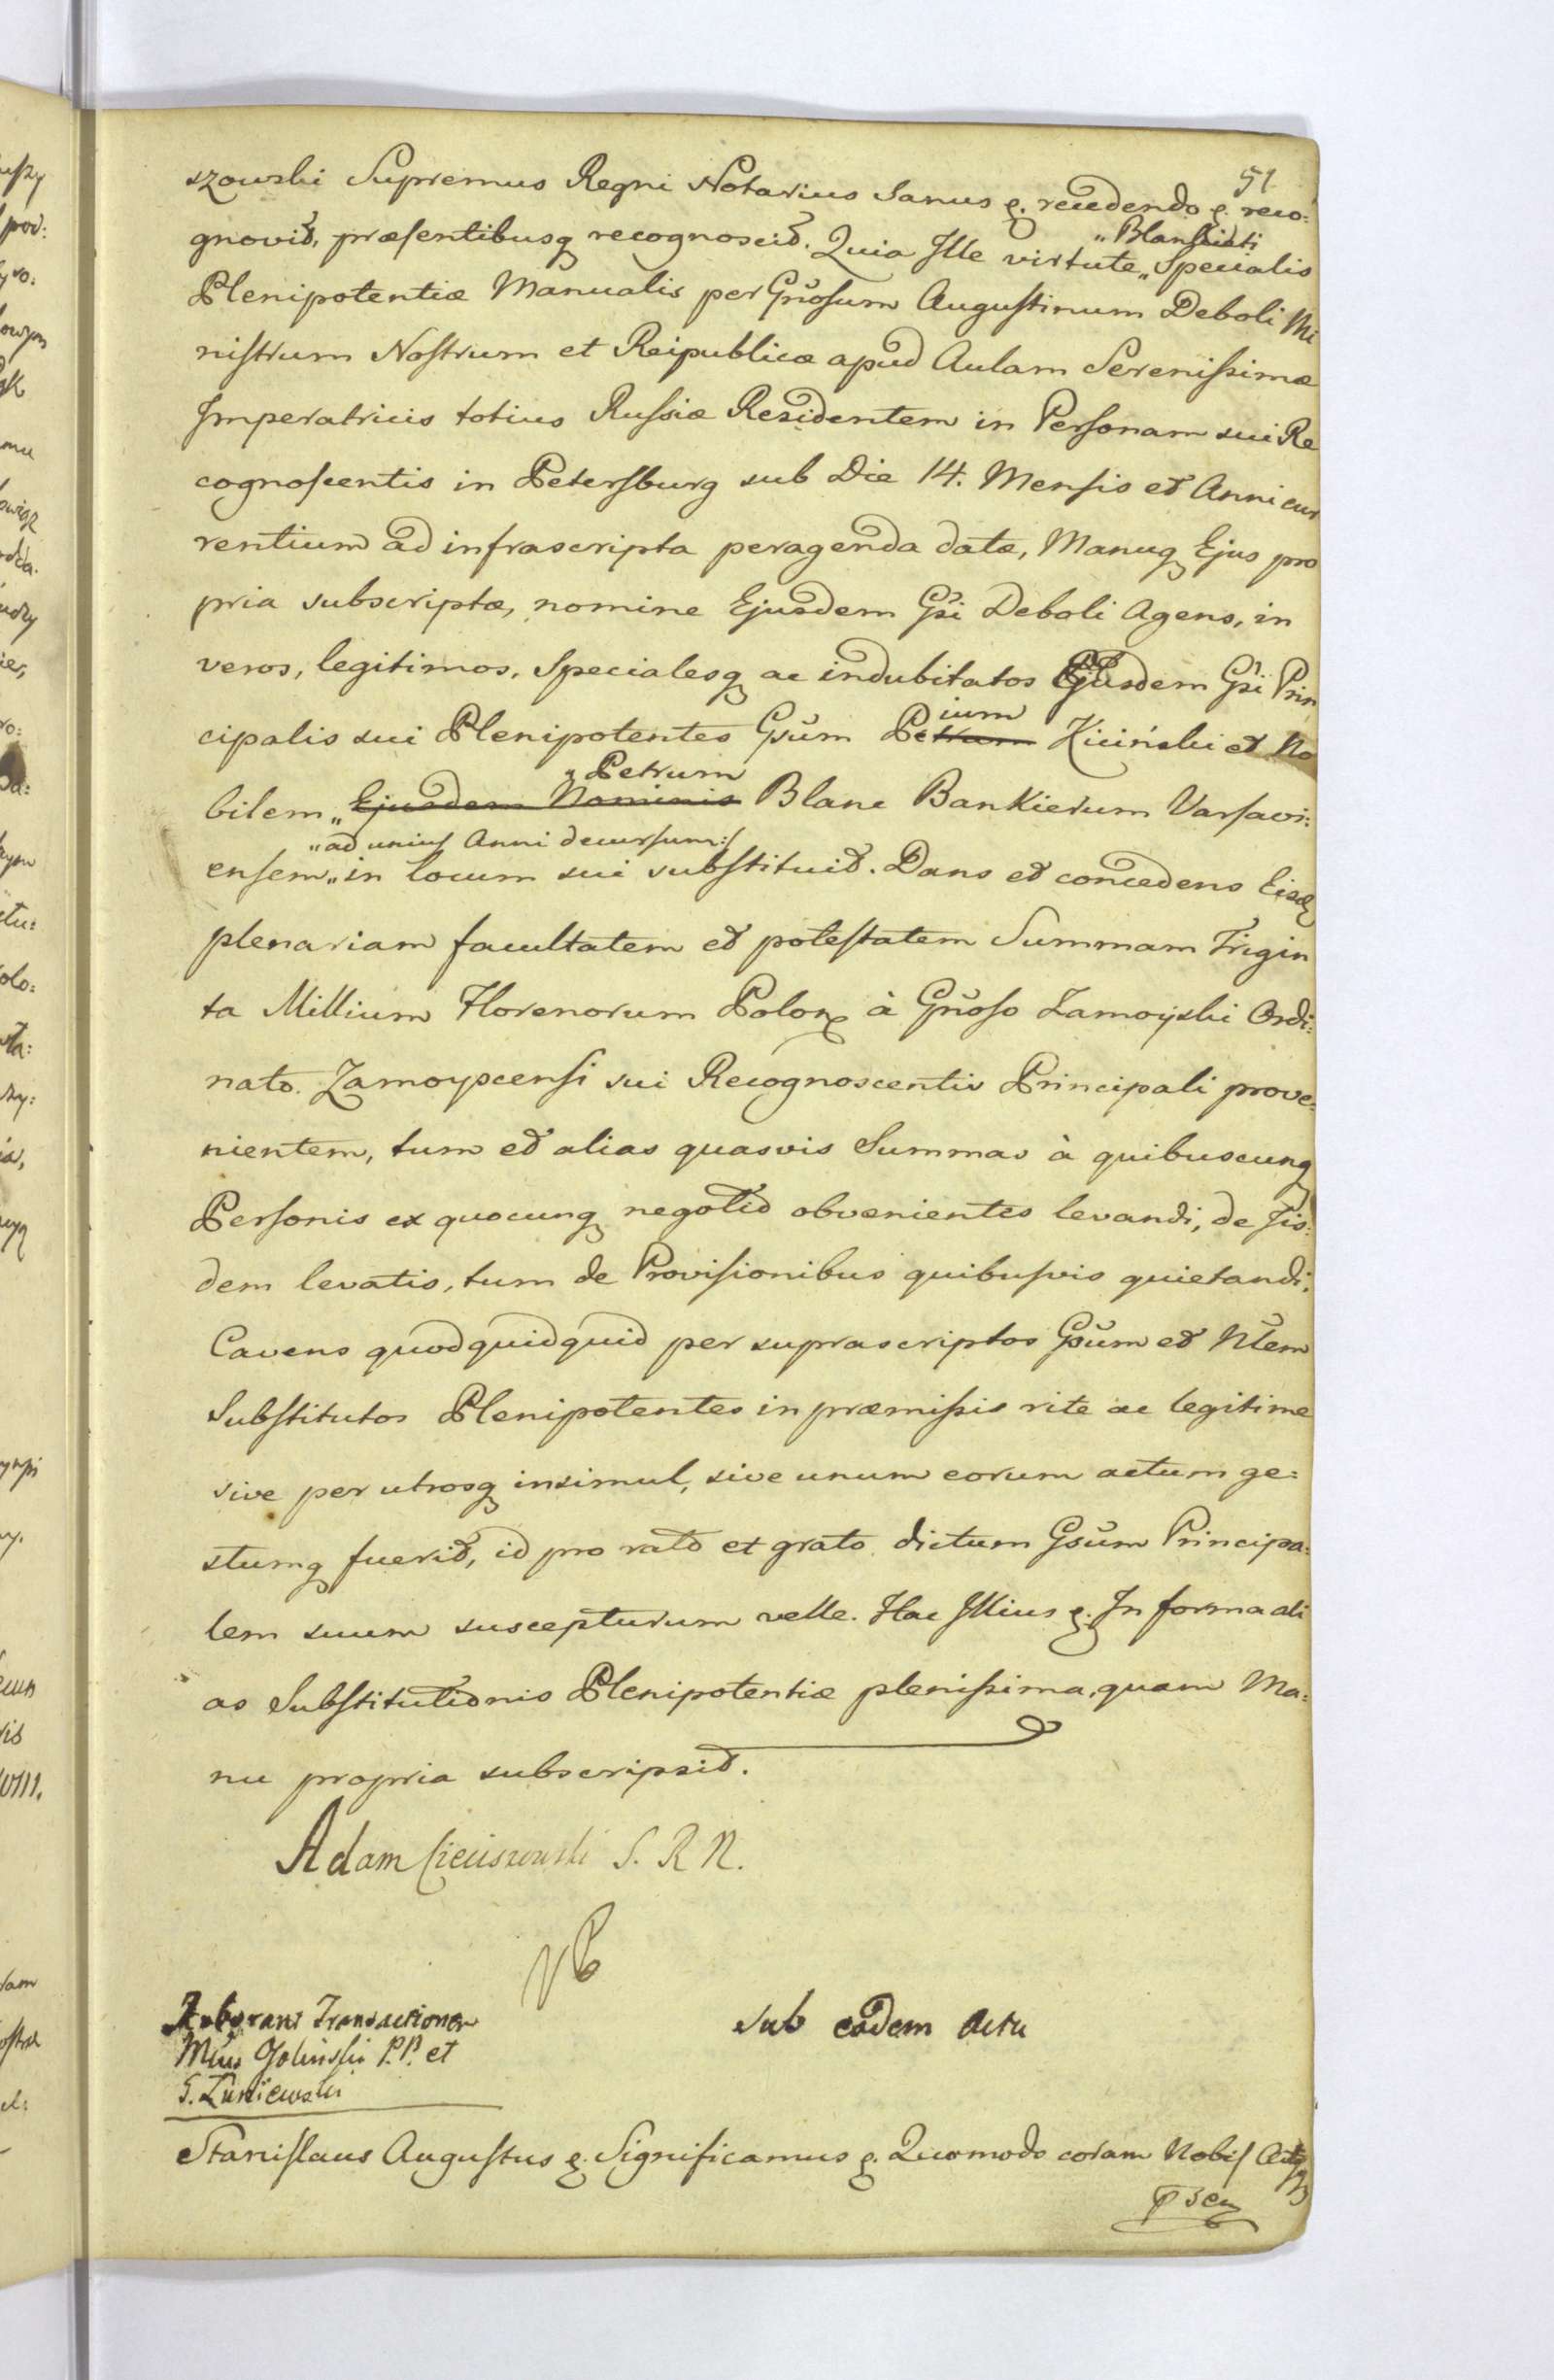 51
szowski Supremus Regni Notarius Sanus &. recedendo &. reco:
gnovit, præsentibusq recognoscit. Quia Ille virtute „Blankiati„ Specialis
Plenipotentiæ Manualis per Gnosum Augustinum Deboli Mi
nistrum Nostrum et Reipublicæ apud Aulam Serenissimæ
Imperatricis totius Russiæ Residentem in Personam sui Re
cognoscentis in Petersburg sub Die 14. Mensis et Anni cur
rentium ad infrascripta peragenda datæ, Manuq Ejus pro
pria subscriptæ, nomine Ejusdem Gsi Deboli Agens, in
veros, legitimos, Specialesq ac indubitatos Ejusdem Gsi Prin
cipalis sui Plenipotentes Gsum Petrum ium Kiciński et No
bilem „Ejusdem Nominis „Petrum Blanc Bankierum Varsavi:
ensem „ad unius Anni decursum:/ „in locum sui substituit. Dans et concedens Eisd
plenariam facultatem et potestatem Summam Trigin
ta Millium Florenorum Polon à Gnoso Zamoyski Ordi:
nato Zamoyscensi sui Recognoscentis Principali prove:
nientem, tum et alias quasvis Summas à quibuscunq
Personis ex quocunq negotio obvenientes levandi, de Iis:
dem levatis, tum de Provisionibus quibusvis quietandi.
Cavens quod quidquid per suprascriptos Gsum et Nlem
Substitutos Plenipotentes in præmissis rite ac legitime
sive per utrosq insimul, sive unum eorum actum ge:
stumq fuerit, id pro rato et grato dictum Gsum Principa:
lem suum suscepturum velle. Hac Illius &. In forma ali
as Substitutionis Plenipotentiæ plenissima, quam Ma:
nu propria subscripsit.
Adam Cieciszowski S. R N.
Roborans Transactionem
Mcus Goliński P.P. et
S. Zuniewski
Sub eadem Actu
Stanislaus Augustus &. Significamus &. Quomodo coram Nobis